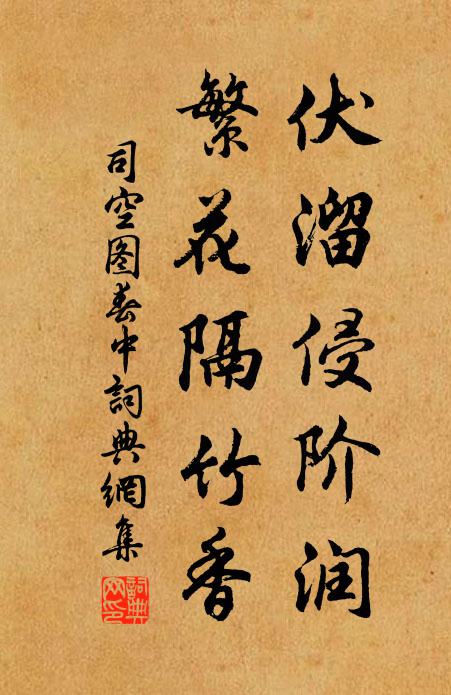 伏溜侵阶润
繁花隔竹香
司空图春中词典網集
詞典網印